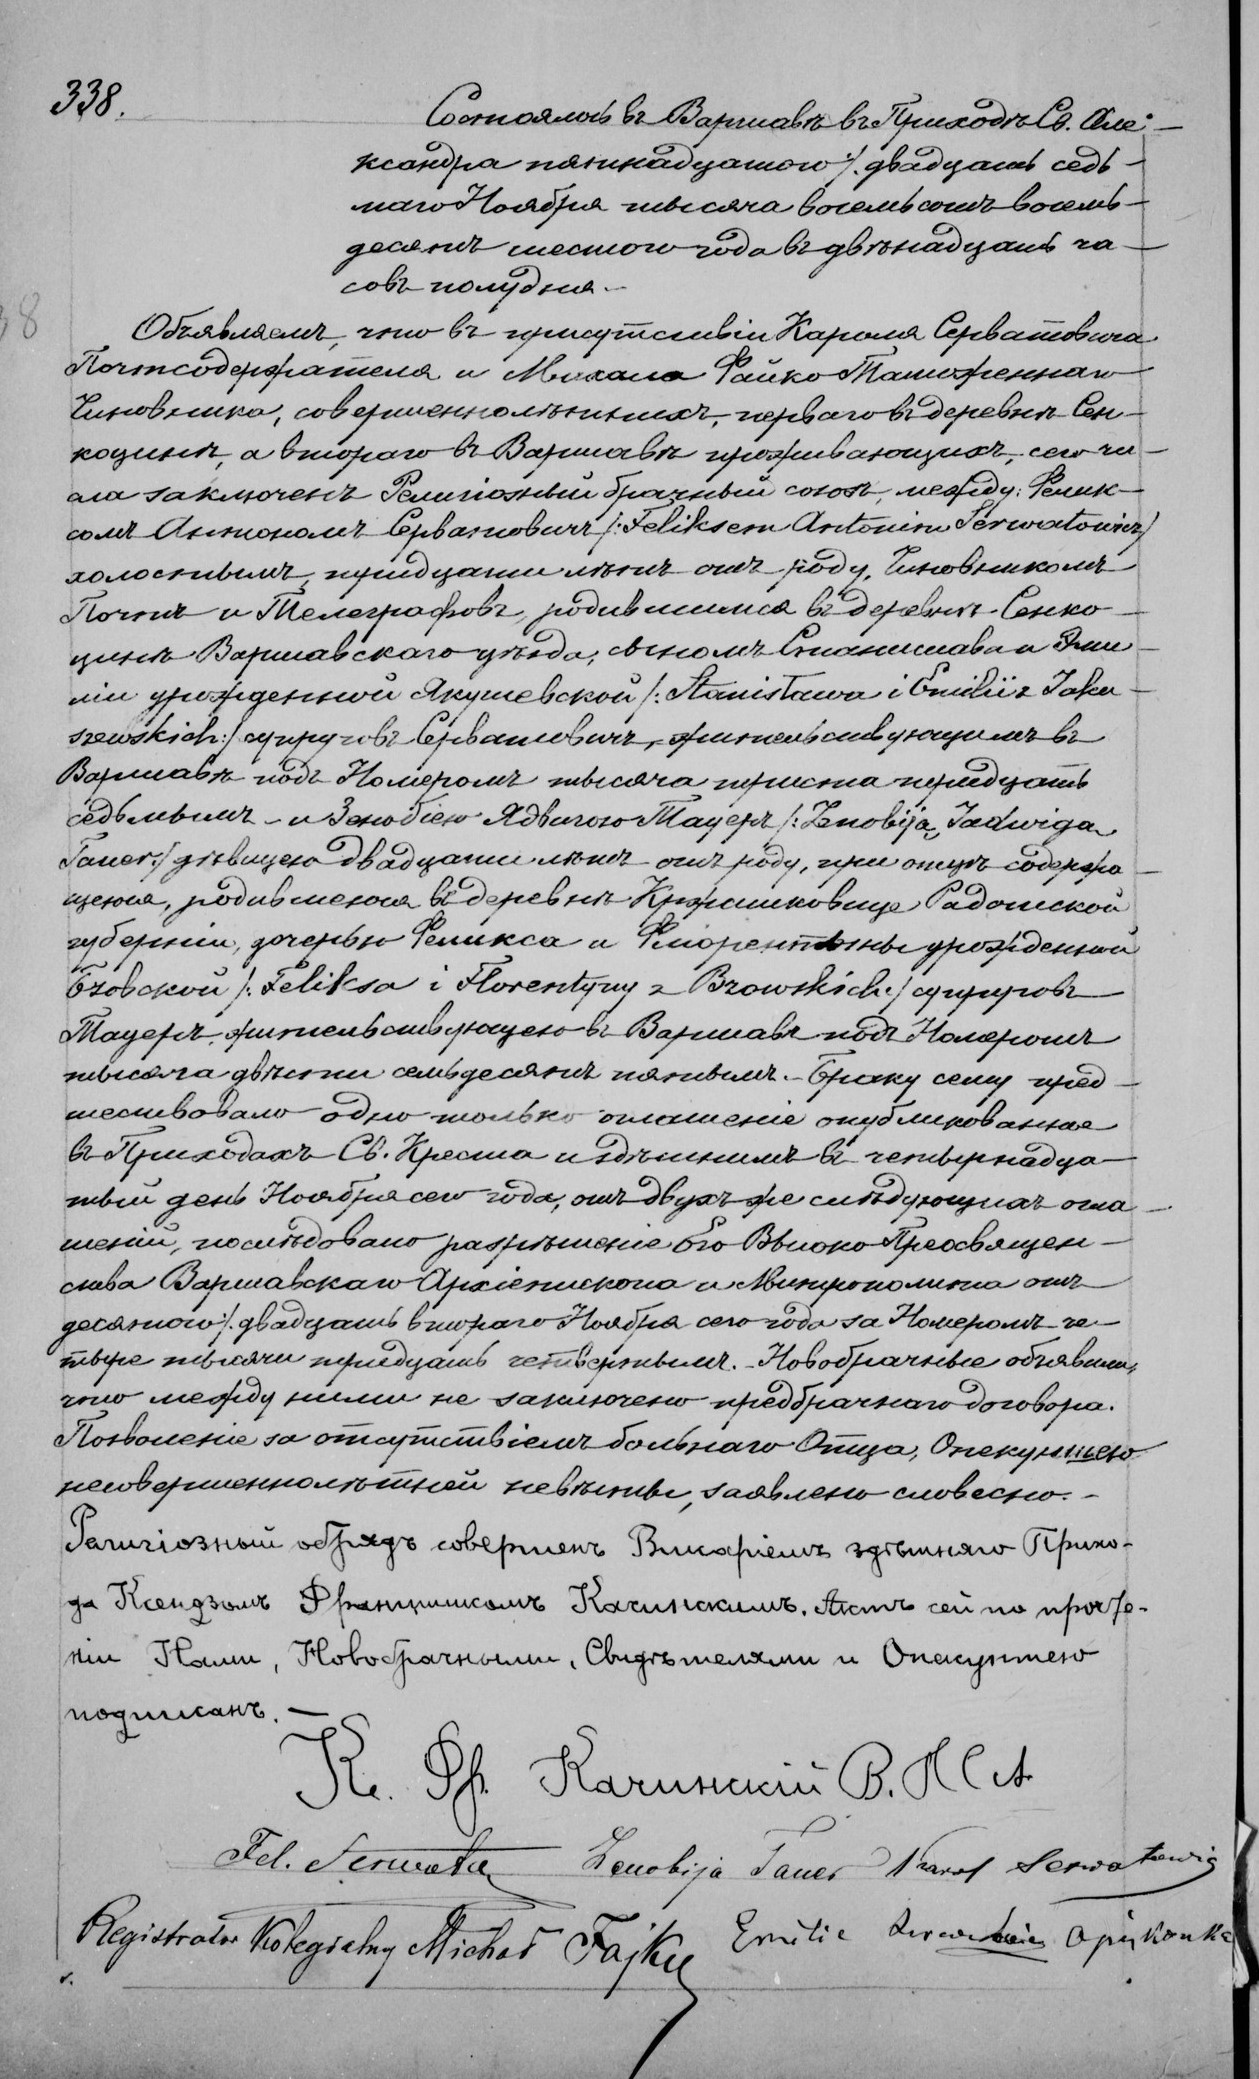 338.
Состоялось въ Варшавѣ въ Приходѣ Св. Але-
ксандра пятнадцатого /. двадцать седь-
маго Ноября тысяча восемьсотъ восемь-
десятъ шестого года въ двѣнадцать ча-
совъ полудня.-
Объявляемъ, что въ присутствіи Кароля Серватовича
Почтсодержателя и Михала Файко Таможеннаго
Чиновника, совершеннолѣтнихъ, перваго въ деревнѣ Сен-
коцинѣ, а втораго въ Варшавѣ проживающихъ, сего чи-
сла заключенъ Религіозный брачный союзъ, между: Фелик-
сомъ Антономъ Серватовичъ /:Feliksem Antonim Serwatowicz/
холостымъ, тридцати лѣтъ отъ роду, Чиновникомъ
Почтъ и Телеграфовъ, родившимся въ деревнѣ Сенко-
цинѣ Варшавскаго уѣзда, сыномъ Станислава и Эми-
ліи урожденной Якушевской /: Stanisława i Emilii z Jaku-
szewskich:/ супруговъ Серватовичъ, жительствующимъ въ
Варшавѣ подъ Номеромъ тысяча триста тридцать
седьмымъ - и Зенобіею Ядвигою Тауеръ /: Zenobija Jadwiga
Tauer:/ дѣвицею двадцати лѣтъ отъ роду, при отцѣ содержа-
щеюся, родившеюся въ деревнѣ Кржишковице Радомской
губерніи, дочерью Феликса и Флорентины урожденной
Бзовской /: Feliksa i Florentyny z Bzowskich:/ супруговъ
Тауеръ, жительствующею въ Варшавѣ подъ Номеромъ
тысяча двѣсти семьдесятъ пятымъ.- Браку сему пред-
шествовало одно только оглашеніе опубликованное
въ Приходахъ Св. Креста и здѣшнимъ въ четырнадца-
тый день Ноября сего года, отъ двухъ же слѣдующихъ огла-
шеній, послѣдовало разрѣшеніе Его Высоко Преосвящен-
ства Варшавскаго Архіепископа и Митрополита отъ
десятого /. двадцать втораго Ноября сего года за Номеромъ че-
тыре тысячи тридцать четвертымъ.- Новобрачные объявили,
что между ними не заключено предбрачнаго договора.
Позволеніе за отсутствіемъ больнаго Отца, Опекуншею
несовершеннолѣтней невѣсты, заявлено словесно.-
Религіозный обрядъ совершенъ Викаріемъ здѣшняго Прихо-
да Ксендзомъ Францишкомъ Качинскимъ. Актъ сей по прочте-
ніи Нами, Новобрачными, Свидѣтелями и Опекуншею
подписанъ. —
К. Фр. Качинскій В. П С А.
Fel. Zenobija Tauer Karol Serwatowicz
Registrator Kolegialny Michał Fajko Emilie opiekunka